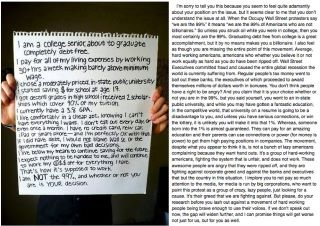 I am a college senior about to graduate
completely debt free.
I pay for all of my living expenses by working
30+ hrs a week making barely above minimum
wage.
I chose a moderately priced, in-state public university
& started saving $ for school at age 17.
I got decent grades in high school & received 2 scholar-
ships which cover 90% of my tuition.
I currently have a 3.8 GPA.
I live comfortably in a cheap apt, knowing I can't
have everything I want. I don't eat out every day, or
even once a month. I have no credit card, new car,
iPad or smart phone — and I'm perfectly ok with that.
If I did have debt, I would not blame Wall St or the
government for my own bad decisions.
I live below my means to continue saving for the future.
I expect nothing to be handed to me, and will continue
to work my @$$ off for everything I have.
That's how it's supposed to work.
I am NOT the 99%, and whether or not you
are is YOUR decision.
I'm sorry to tell you this because you seem to feel quite adamantly
about your position on the issue, but it seems to me that you don't
understand the issue at all. When the Occupy Wall Street protesters say
"we are the 99%" it means "we are the 99% of Americans who are not
billionaires." So unless you struck oil while you were in college, then you
most certainly are the 99%. Graduating debt free from college is a great
accomplishment, but it by no means makes you a billionaire. I also feel
as though you are missing the entire point of the movement. Average,
hard working americans, americans who whether you believe it or not
work equally as hard as you do have been ripped off. Wall Street
Executives committed fraud and caused the entire global recession the
world is currently suffering from. Regular people's tax money went to
bail out these banks, the executives of which proceeded to award
themselves millions of dollars worth in bonuses. You don't think people
have a right to be angry? And you claim that it is your choice whether or
not you are in the 99%, but you said yourself, you went to an in-state
public university, and while you may have gotten a fantastic education,
in the competitive world, that university on a resume is going to be a
disadvantage to you, and unless you have serious connections, or win
the lottery, it is unlikely you will make it into that 1%. Whereas, someone
born into the 1% is almost guaranteed. They can pay for an amazing
education and their parents can use connections or power (for money is
power) to get them high paying positions in companies. The movement,
despite what you appear to think it is, is not a bunch of lazy americans
complaining because they want hand outs. It's a group of hard-working
americans, fighting the system that is unfair, and does not work. These
awesome people are angry that they were ripped off, and they are
fighting against corporate greed and against the banks and executives
that put the country in this situation. I implore you to not pay so much
attention to the media, for media is run by big corporations, who want to
paint this protest as a group of crazy, lazy people, just looking for a
cause. It's their greed that we are fighting against. But please, do your
research before you lash out against a movement of hard working
people being brave enough to use their voices. If we don't speak out
now, the gap will widen further, and I can promise things will get worse
not just for us, but for you as well.